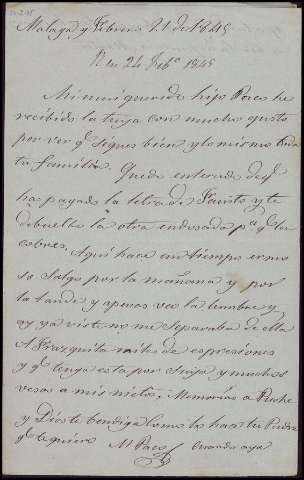 Malaga y Febrero 21 de 1845
R en 24 Febº 1845
Mi muy querido hijo Paco he
recibido la tuya con mucho gusto
por ver qe sigues bien y lo mismo toda
tu familia. Quedo enterado de qe
has pagado la letra de Fausto y te
debuelbo la otra endosada pª qe la
cobres, Aqui hace un tiempo ermo
so Salgo por la mañana y por
la tarde y apenas veo la lumbre y
ay ya viste no me Separaba de ella
A Frazquita miles de espresiones
y qe tenga esta por Suya y muchos
vesos a mis nietos, Memorias a
y Dios te bendiga como lo hace tu Padre
qe te quiere M Paco